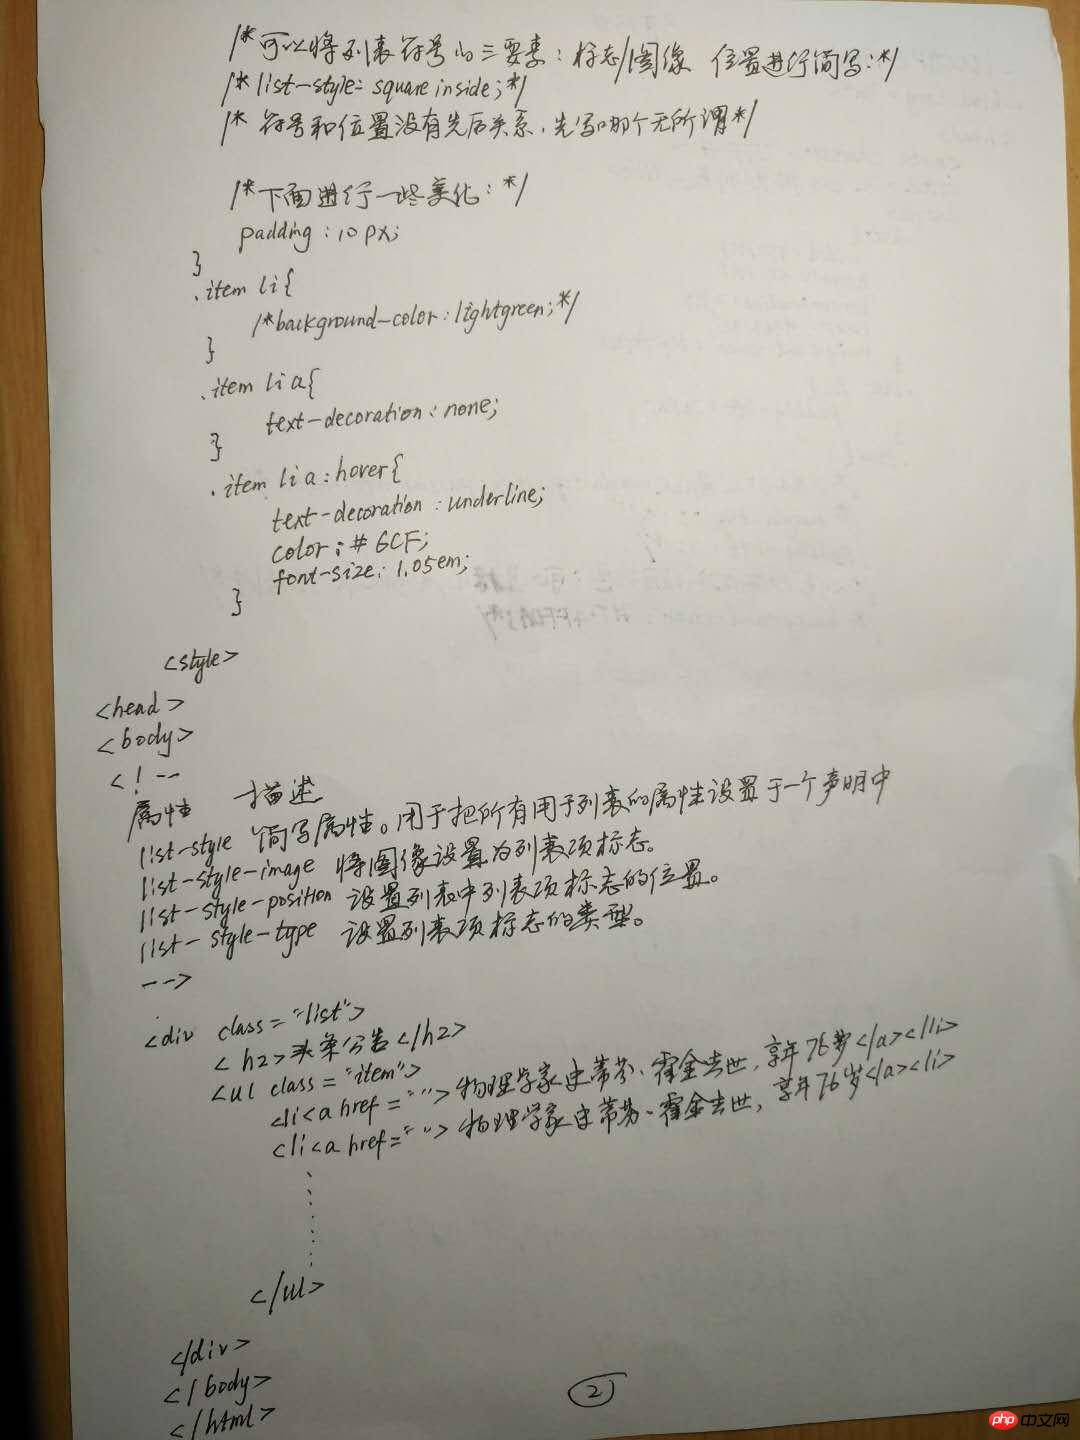 /*可以将列表符号的三要素:标志/图像 位置进行简写:*/
/*list-style: square inside;*/
/* 符号和位置没有先后关系,先写哪个无所谓*/
/*下面进行一些美化:*/
padding:10px;
}
.item li{
/*background-color:lightgreen;*/
}
.item li a{
text-decoration:none;
}
.item li a:hover{
text-decoration:underline;
color:#6CF;
font-size:1.05em;
}
<style>
<head>
<body>
<!--
属性 描述
list-style 简写属性。用于把所有用于列表的属性设置于一个声明中
list-style-image 将图像设置为列表项标志。
list-style-position 设置列表中列表项标志的位置。
list-style-type 设置列表项标志的类型。
-->
<div class="list">
<h2>头条公告</h2>
<ul class="item">
<li<a href="">物理学家史蒂芬·霍金去世,享年76岁</a></li>
<li<a href="">物理学家史蒂芬·霍金去世,享年76岁</a><li>
</ul>
</div>
</body>
</html>
2
php 中文网